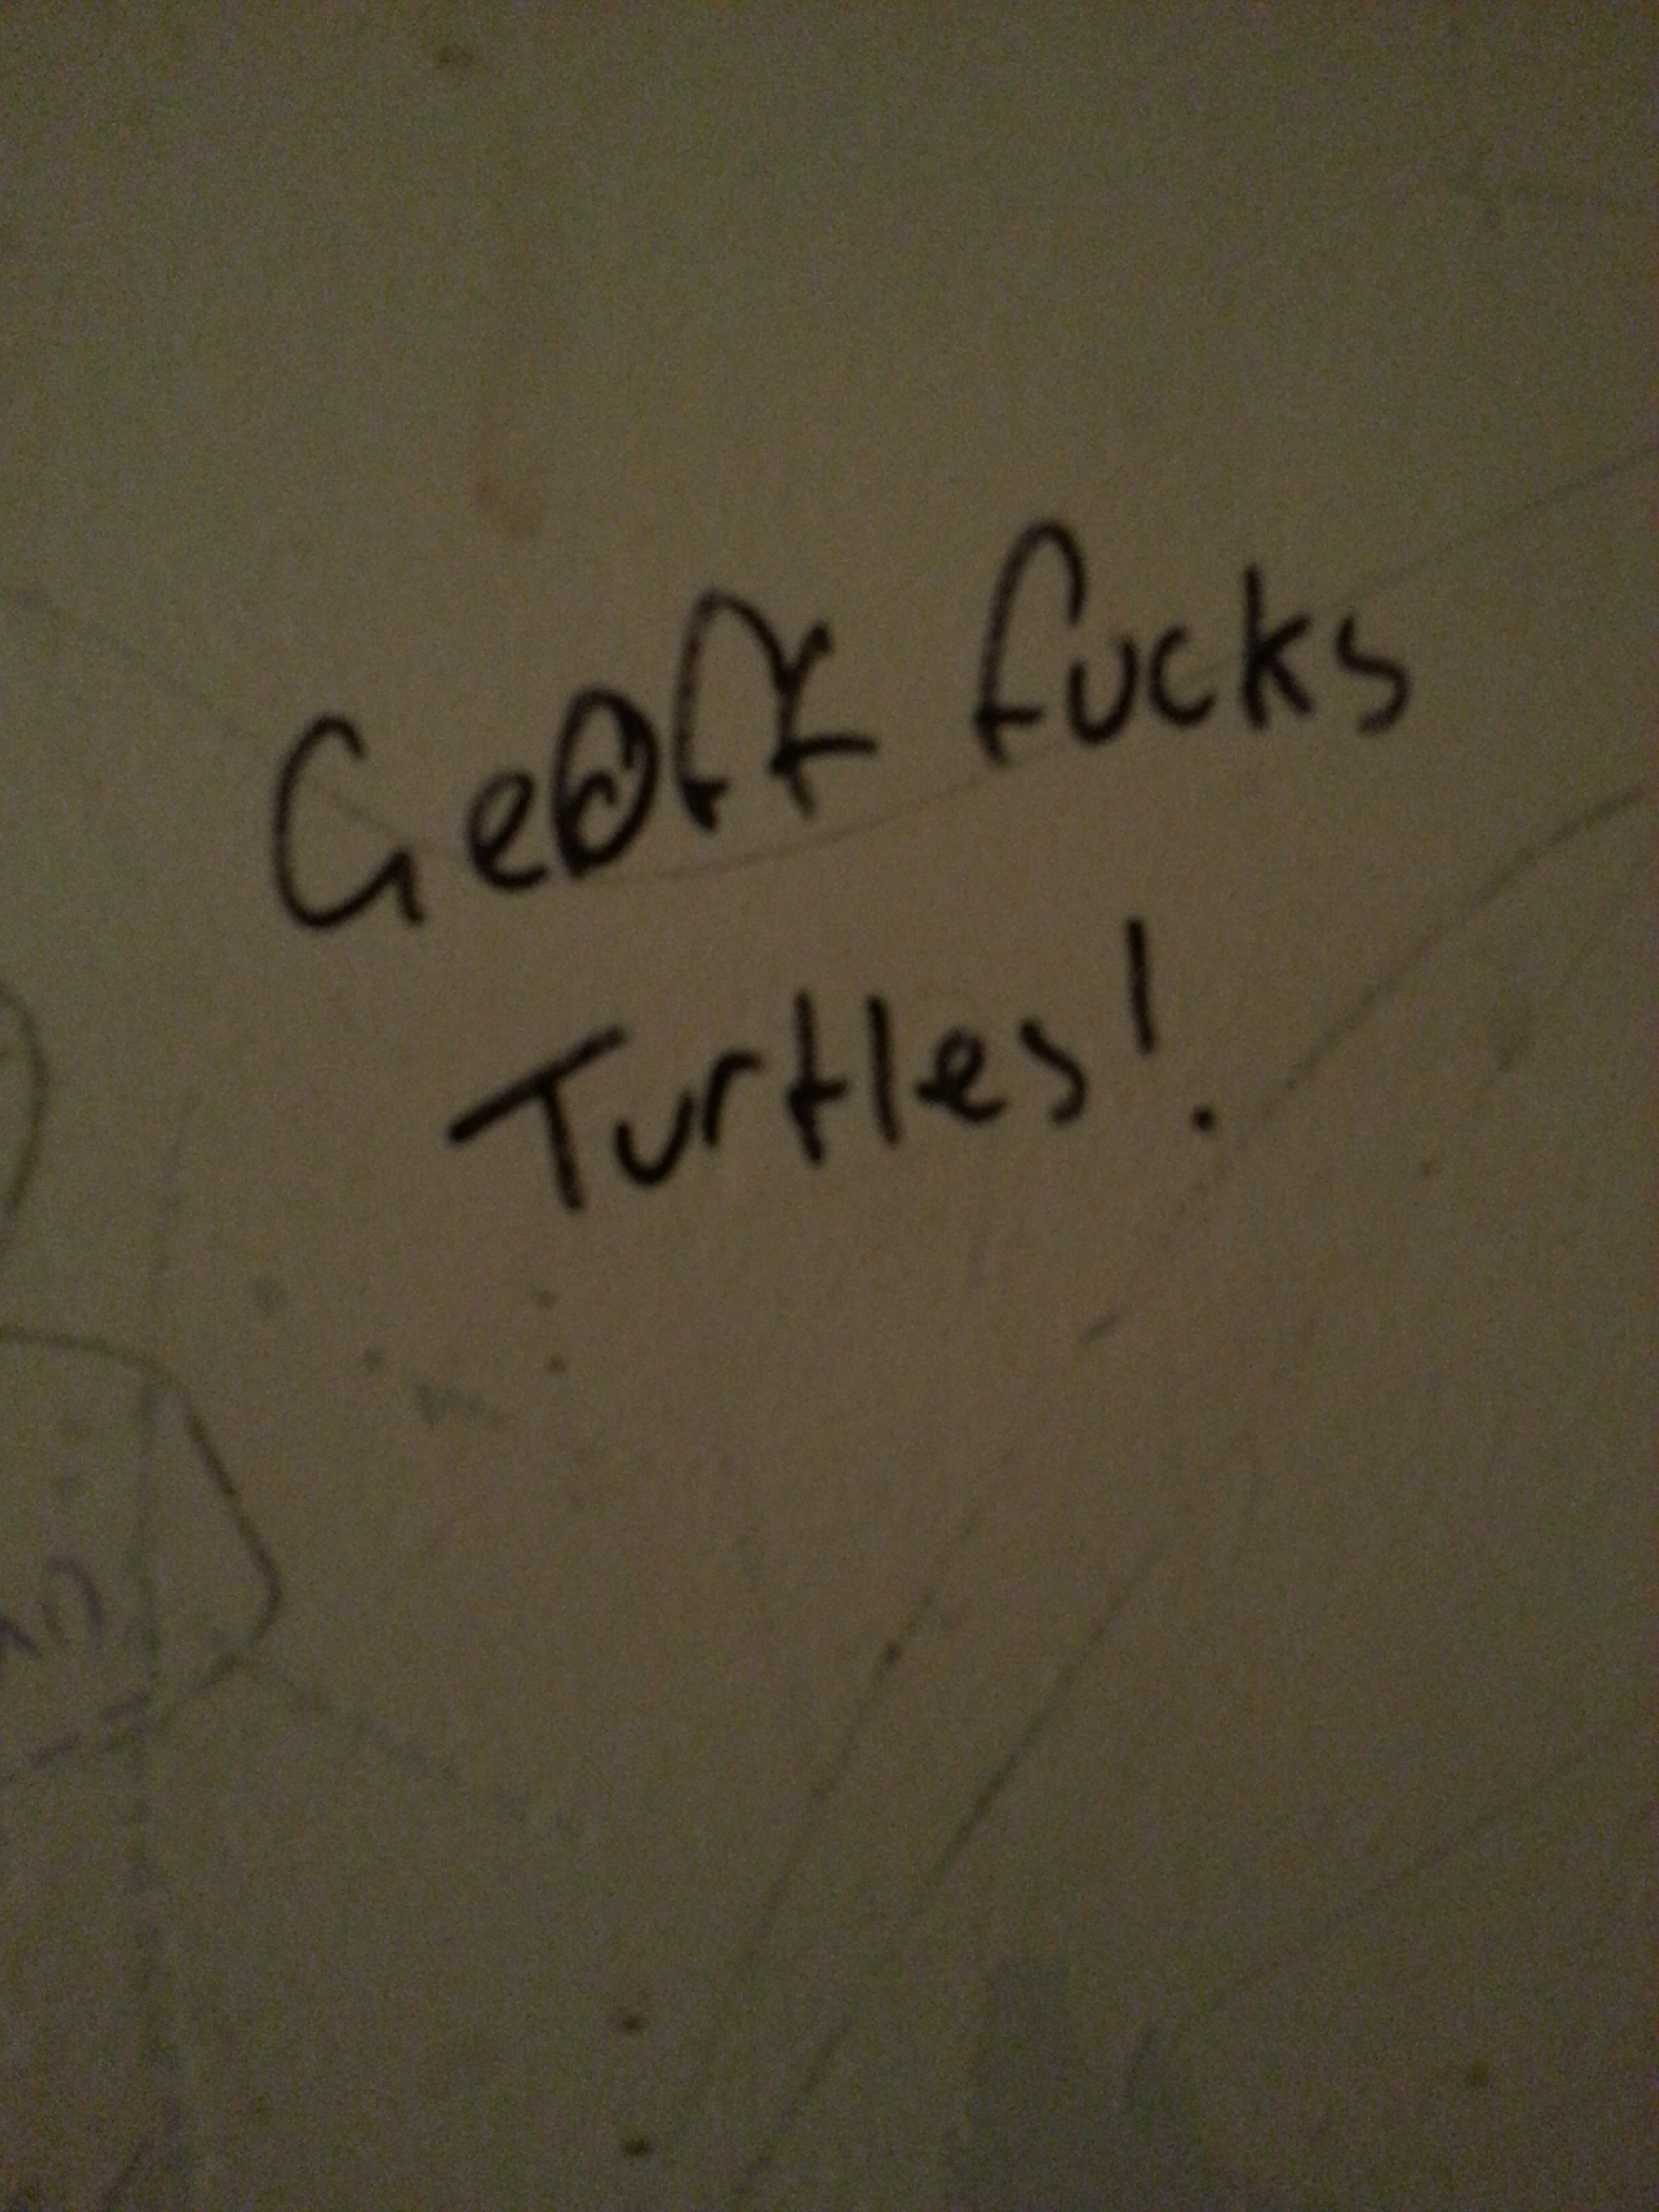 Geoff fucks
Turtles!